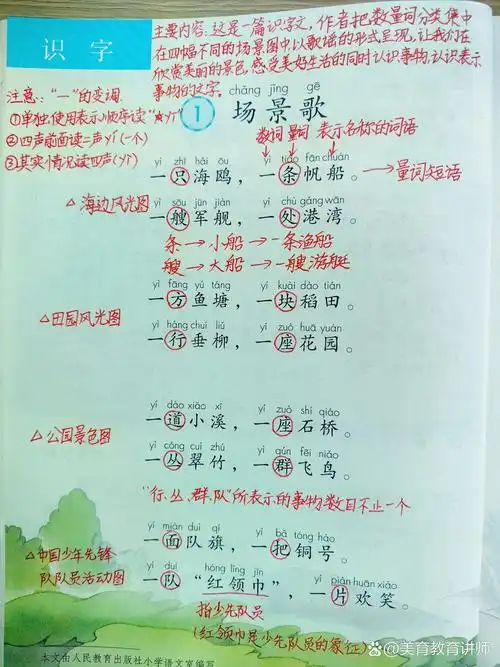 识字
主要内容：这是一篇识字文，作者把数量词分类集中
在四幅不同的场景图中以歌谣的形式呈现，让我们在
欣赏美丽的景色，感受美好生活的同时认识事物，认识表示
事物的文字。
注意："一"的变调
①单独使用表示顺序读"yī"
②四声前面读二声yí(一个)
③其实情况读四声(yì)
chǎng jǐng gē
1 场景歌
数词 量词 表示名称的词语
yì zhī hǎi ōu yì tiáo fān chuán
一只海鸥，一条帆船。→量词短语
△海边风光图
yì sōu jūn jiàn yí chù gǎng wān
一艘军舰，一处港湾。
条→小船→一条渔船
艘→大船→一艘游艇
yì fāng yú táng yí kuài dào tián
一方鱼塘，一块稻田。
△田园风光图
yì háng chuí liǔ yí zuò huā yuán
一行垂柳，一座花园。
yí dào xiǎo xī yí zuò shí qiáo
一道小溪，一座石桥。
△公园景色图
yì cóng cuì zhú yì qún fēi niǎo
一丛翠竹，一群飞鸟。
"行、丛、群、队"所表示的事物数目不止一个
yí miàn duì qí yì bǎ tóng hào
一面队旗，一把铜号。
△中国少年先锋
队队员活动图
yí duì hóng lǐng jīn yí piàn huān xiào
一队"红领巾"，一片欢笑。
指少先队员
(红领巾是少先队员的象征)
本文由人民教育出版社小学语文室编写
@美育教育讲师